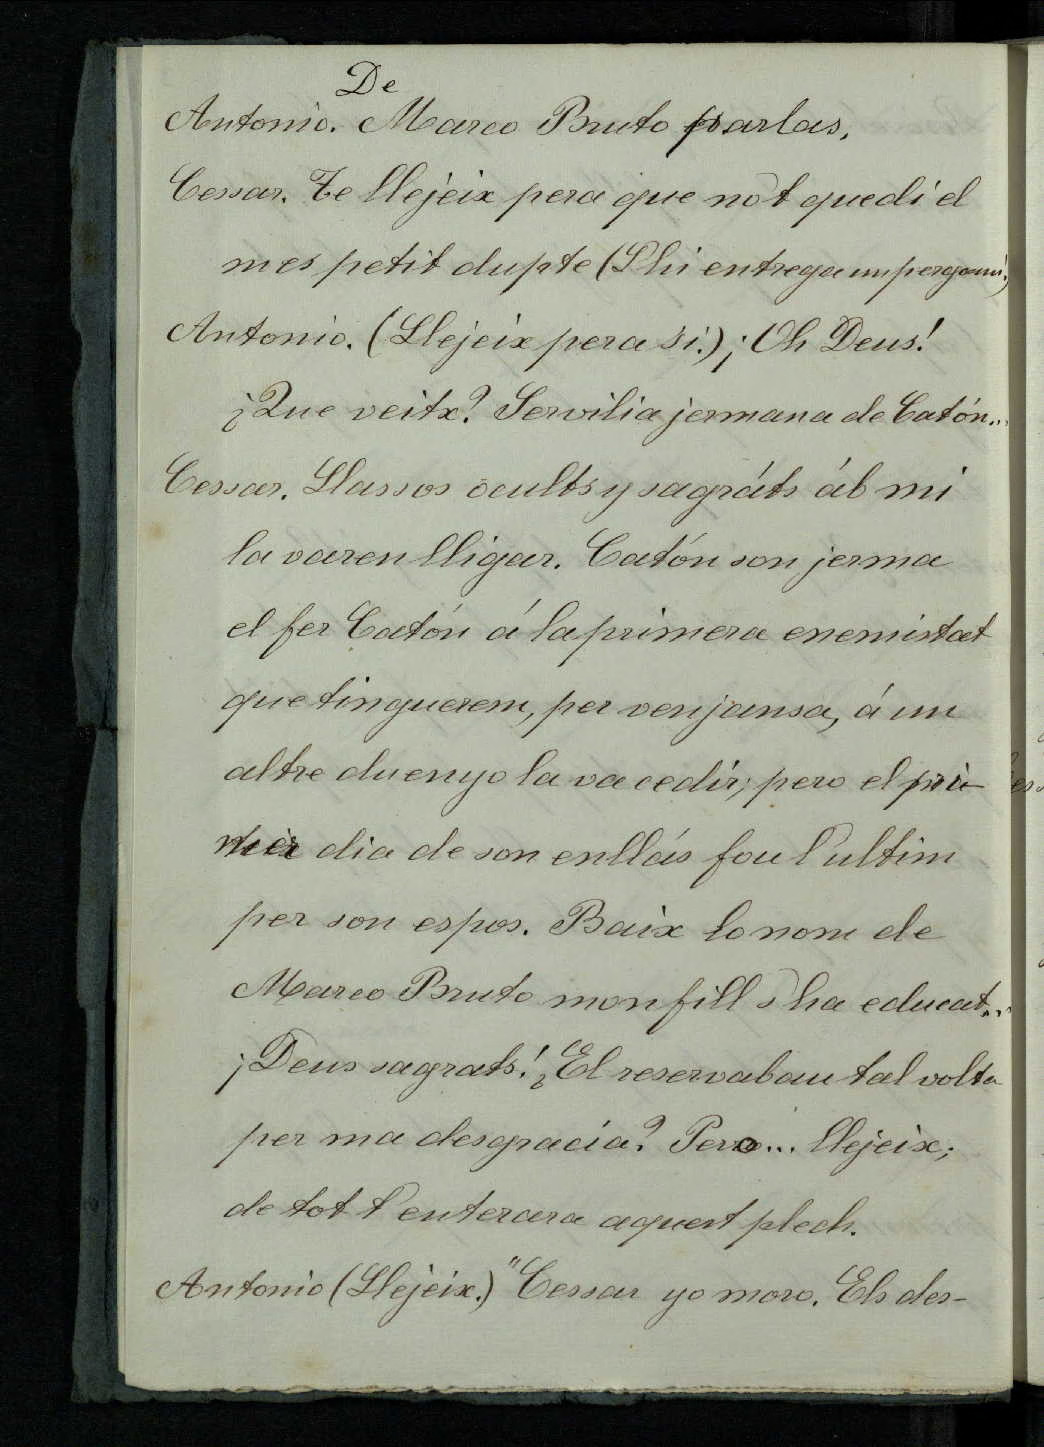 De
Antonio. Marco Bruto parlas,
Cessar. Te llejeix pera que no't quedi el
mes petit dupte (L'hi entrega un pergamí.)
Antonio. (Llejeix pera si.) ¡Oh Deus!
¿Que veitx? Servilia jermana de Catón...
Cessar. Llassos ocults y sagráts áb mi
la varen lligar. Catón son jerma
el fer Catón á la primera enemistat
que tinguerem, per venjansa, á un
altre duenyo la va cedir; pero el pri-
mer dia de son enllás fou l'ultim
per son espos. Baix lo nom de
Marco Bruto mon fill s'ha educat...
¡Deus sagrats! ¿El reservabau tal volta
per ma desgracia? Pero... llejeix;
de tot t'enterara aquest plech.
Antonio (Llejeix.) "Cessar yo moro. Els des-